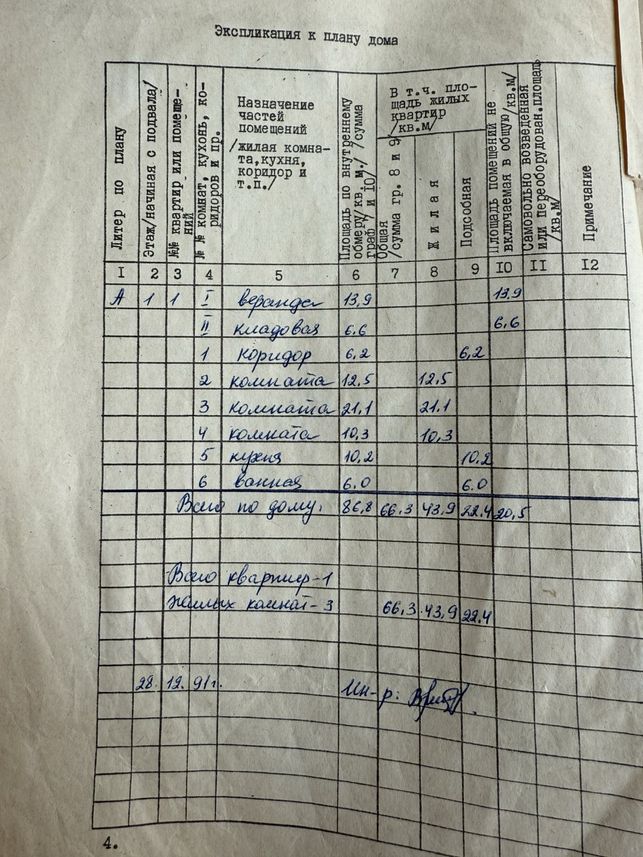 Экспликация к плану дома
Литер по плану
Этаж/начиная с подвала/
№№ квартир или помеще-
ний
№ № комнат, кухонь, ко-
ридоров и пр.
Назначение
частей
помещений
/жилая комна-
та,кухня,
коридор и
т.п./
Площадь по внутреннему
обмеру/кв. м./ /сумма
граф 7 и 10/
В т.ч. пло-
щадь жилых
квартир
/кв.м/
Общая
/сумма гр. 8 и 9/
Жилая
Подсобная
Площадь помещений не
включаемая в общую/кв.м/
Самовольно возведенная
или переоборудован.площадь
/кв.м/
Примечание
I 2 3 4 5 6 7 8 9 IO II I2
А 1 1 I веранда 13,9 13,9
II кладовая 6.6 6,6
1 коридор 6,2 6,2
2 комната 12,5 12.5
3 комната 21.1 21.1
4 комната 10,3 10.3
5 кухня 10,2 10.2
6 ванная 6.0 6.0
Всего по дому. 86,8 66,3 43,9 22.4 20,5
Всего квартир-1
жилых комнат-3 66,3 43,9 22.4
28. 12. 91г. Ин-р:
4.